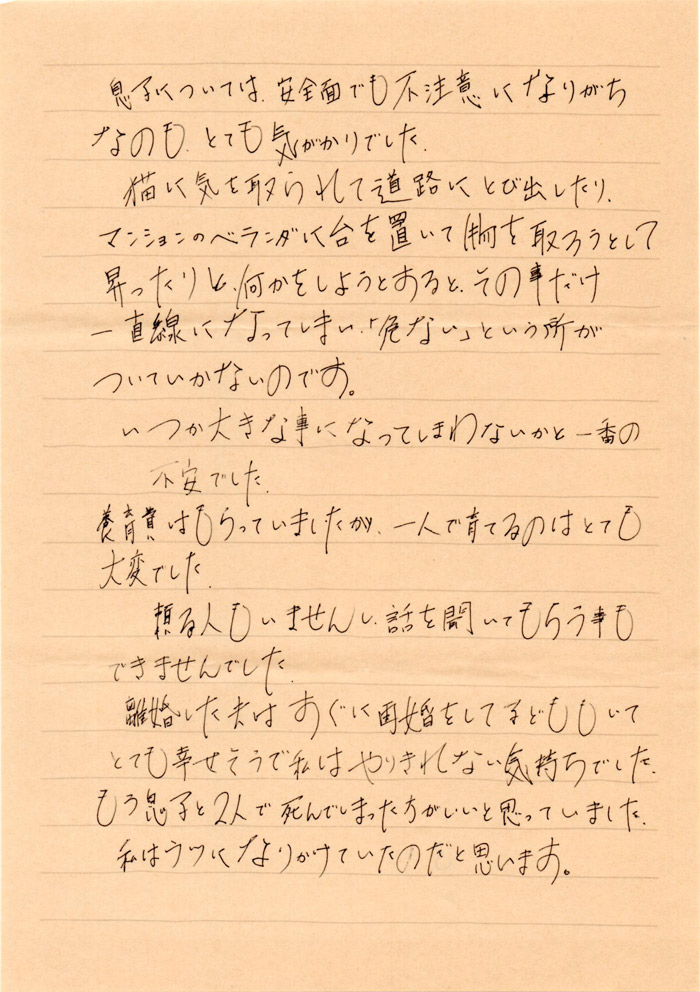 息子については、安全面でも不注意になりがち
なのも、とても気がかりでした。
猫に気を取られて道路にとび出したり、
マンションのベランダに台を置いて物を取ろうとして
昇ったりと、何かをしようとあると、その事だけ
一直線になってしまい、「危ない」という所が
ついていかないのです。
いつか大きな事になってしまわないかと一番の
不安でした。
養育費はもらっていましたが、一人で育てるのはとても
大変でした。
頼る人もいませんし、話を聞いてもらう事も
できませんでした。
離婚した夫はすぐに再婚をして子どももいて
とても幸せそうで私はやりきれない気持ちでした。
もう息子と2人で死んでしまった方がいいと思っていました。
私はウツになりがけていたのだと思います。